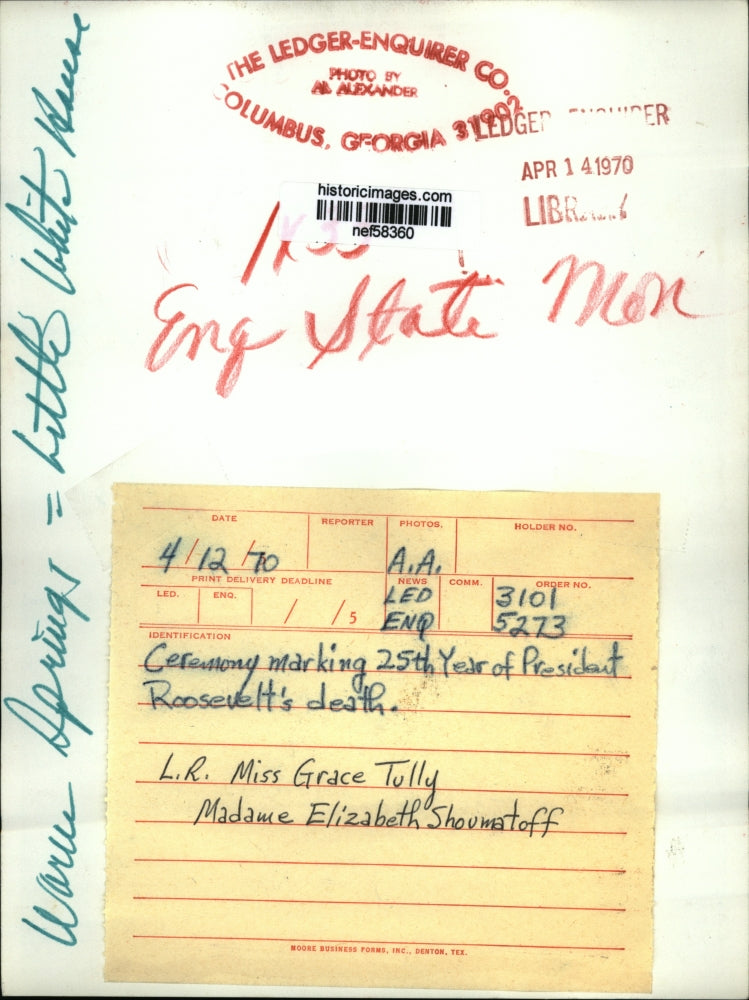 THE LEDGER-ENQUIRER CO.
PHOTO BY
AL ALEXANDER
COLUMBUS, GEORGIA 31902
LEDGER ENQUIRER
APR 14 1970
LIBRARY
historicimages.com
nef58360
Eng State Mon
Warm Springs = Little White House
DATE REPORTER PHOTOG. HOLDER NO.
4/12/70 A.A.
PRINT DELIVERY DEADLINE NEWS COMM. ORDER NO.
LED. ENQ. LED 3101
/ /5 ENQ 5273
IDENTIFICATION
Ceremony marking 25th Year of President
Roosevelt's death.
L.R. Miss Grace Tully
Madame Elizabeth Shoumatoff
MOORE BUSINESS FORMS, INC., DENTON, TEX.